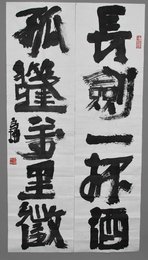 長劍一杯酒
孤篷萬里徵